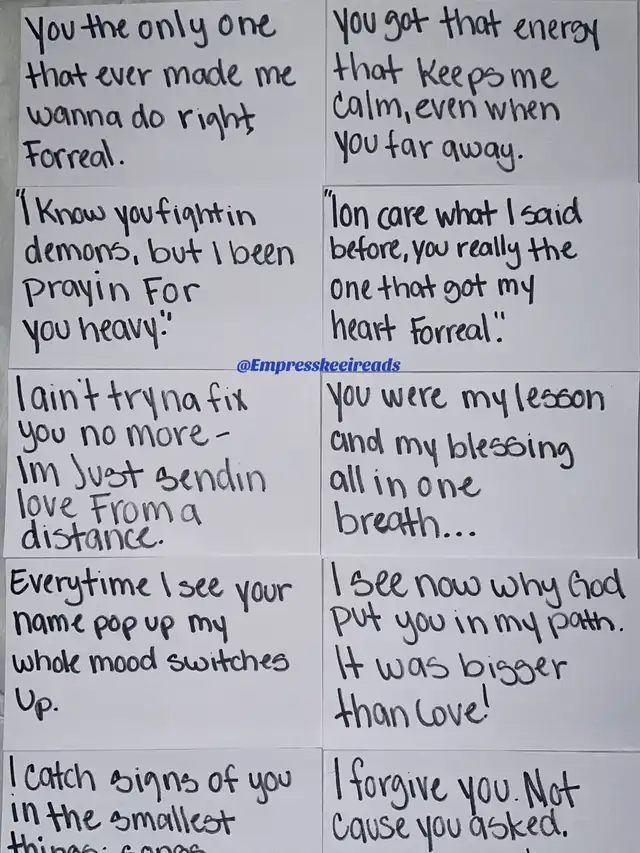 You the only one
that ever made me
wanna do right
Forreal.
You got that energy
that keeps me
calm, even when
you far away.
"I know you fightin
demons, but I been
prayin for
you heavy."
"Ion care what I said
before, you really the
one that got my
heart Forreal."
@Empresskeeireads
I ain't tryna fix
you no more -
Im Just sendin
love From a
distance.
you were my lesson
and my blessing
all in one
breath...
Everytime I see your
name pop up my
whole mood switches
Up.
I see now why God
put you in my path.
It was bigger
than Love!
I catch signs of you
in the smallest
things: songs
I forgive you. Not
cause you asked.